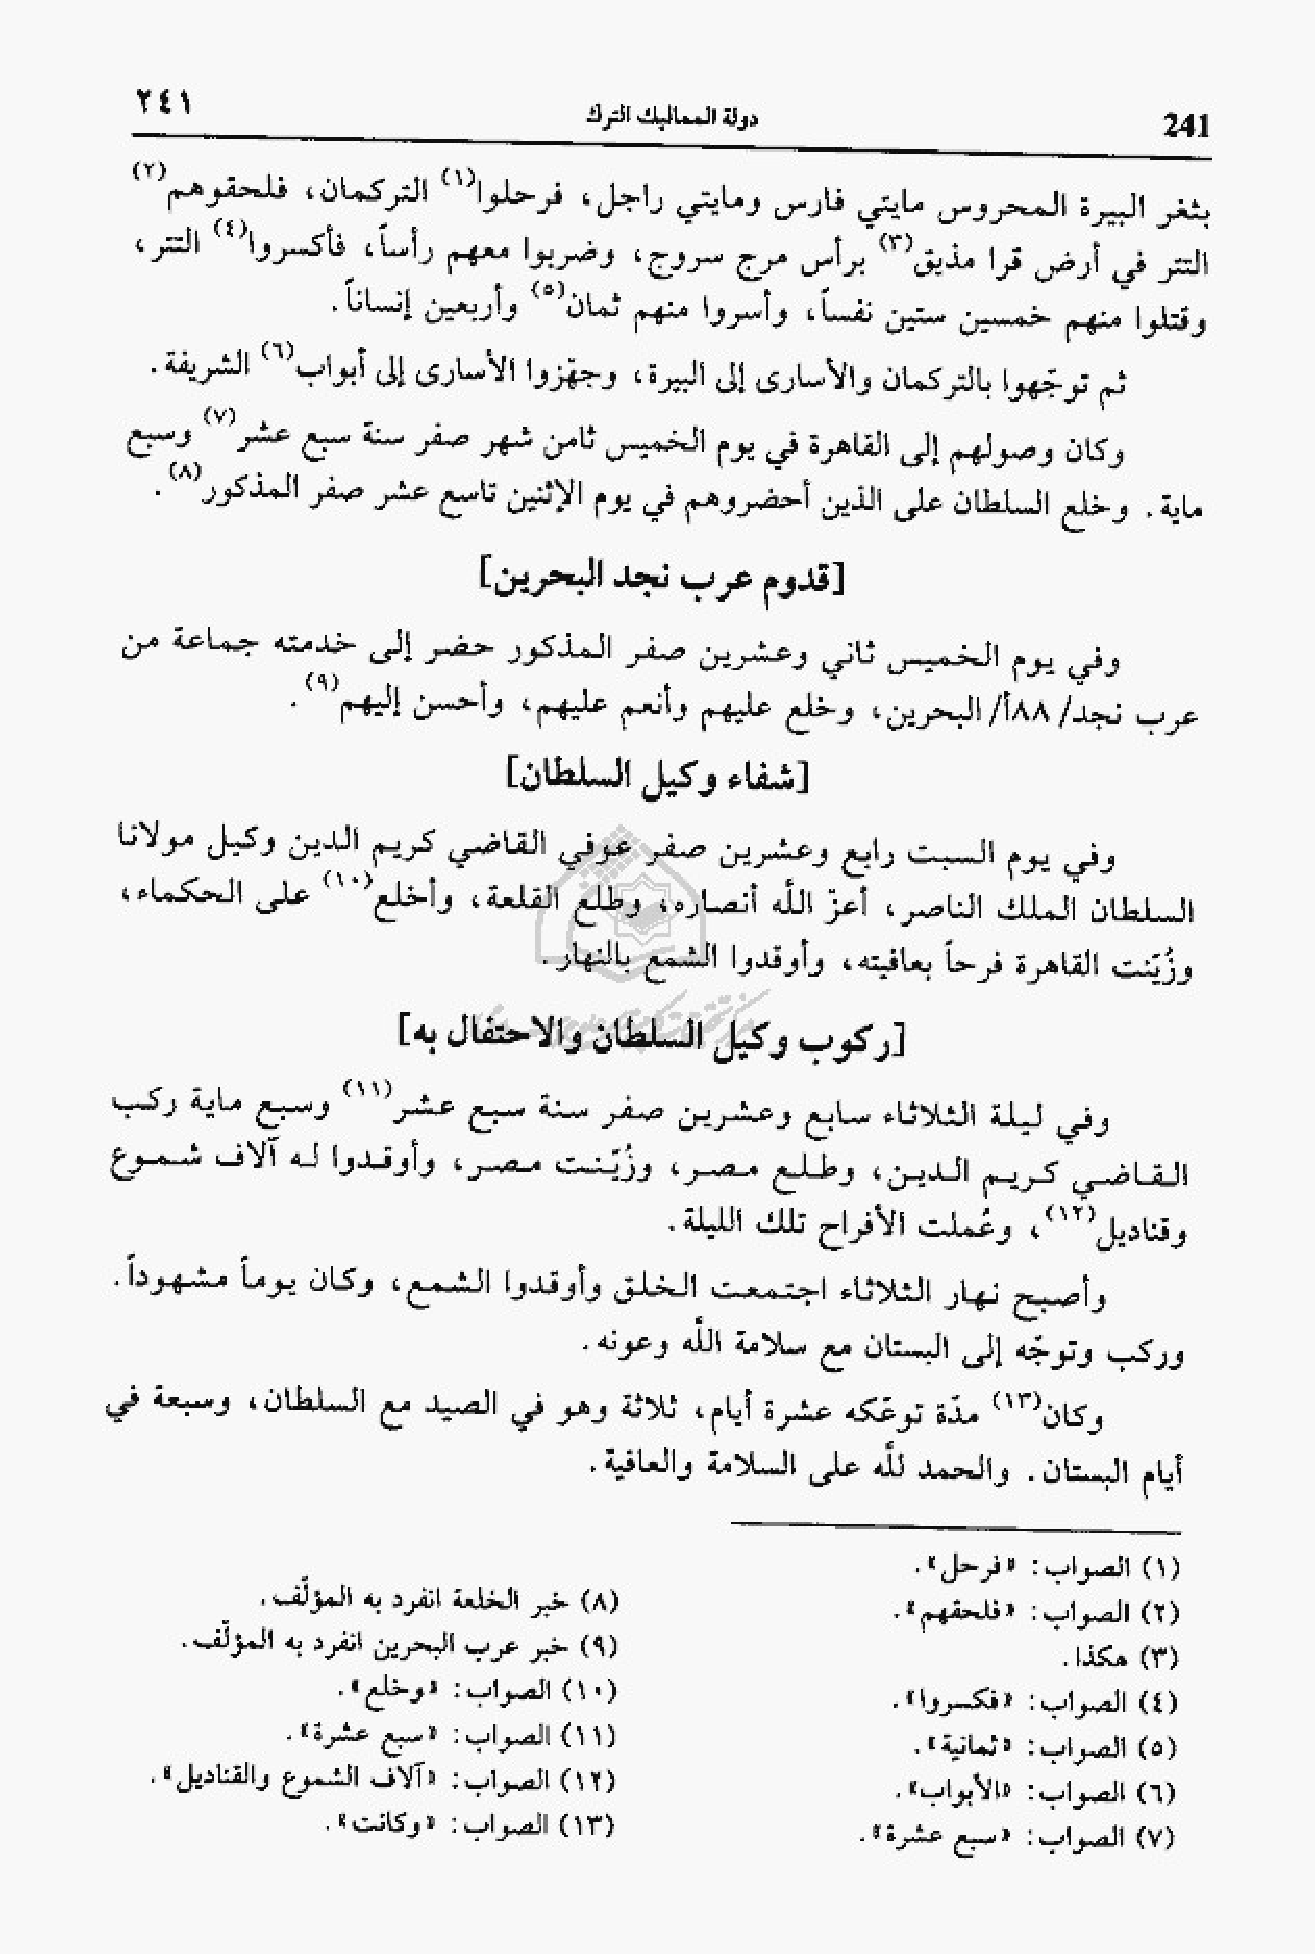 ٢٤١
دولة المماليك الترك
241
بثغر البيرة المحروس مايتي فارس ومايتي راجل، فرحلوا(١) التركمان، فلحقوهم(٢)
التتر في أرض قرا مذيق(٣) برأس مرج سروج، وضربوا معهم رأساً، فأكسروا(٤) التتر،
وقتلوا منهم خمسين ستين نفساً، وأسروا منهم ثمان(٥) وأربعين إنساناً.
ثم توجّهوا بالتركمان والأسارى إلى البيرة، وجهّزوا الأسارى إلى أبواب(٦) الشريفة.
وكان وصولهم إلى القاهرة في يوم الخميس ثامن شهر صفر سنة سبع عشر(٧) وسبع
ماية. وخلع السلطان على الذين أحضروهم في يوم الإثنين تاسع عشر صفر المذكور(٨).
[قدوم عرب نجد البحرين]
وفي يوم الخميس ثاني وعشرين صفر المذكور حضر إلى خدمته جماعة من
عرب نجد/ ٨٨أ/ البحرين، وخلع عليهم وأنعم عليهم، وأحسن إليهم(٩).
[شفاء وكيل السلطان]
وفي يوم السبت رابع وعشرين صفر عوفي القاضي كريم الدين وكيل مولانا
السلطان الملك الناصر، أعزّ اللّه أنصاره، وطلع القلعة، وأخلع(١٠) على الحكماء،
وزُيّنت القاهرة فرحاً بعاقبته، وأوقدوا الشمع بالنهار.
[ركوب وكيل السلطان والاحتفال به]
وفي ليلة الثلاثاء سابع وعشرين صفر سنة سبع عشر(١١) وسبع ماية ركب
القاضي كريم الدين، وطلع مصر، وزُيّنت مصر، وأوقدوا له آلاف شموع
وقناديل(١٢)، وعُملت الأفراح تلك الليلة.
وأصبح نهار الثلاثاء اجتمعت الخلق وأوقدوا الشمع، وكان يوماً مشهوداً.
وركب وتوجّه إلى البستان مع سلامة اللّه وعونه.
وكان(١٣) مدّة توعّكه عشرة أيام، ثلاثة وهو في الصيد مع السلطان، وسبعة في
أيام البستان. والحمد للّه على السلامة والعافية.
(١) الصواب: «فرحل».
(٢) الصواب: «فلحقهم».
(٣) هكذا.
(٤) الصواب: «فكسروا».
(٥) الصواب: «ثمانية».
(٦) الصواب: «الأبواب».
(٧) الصواب: «سبع عشرة».
(٨) خبر الخلعة انفرد به المؤلّف.
(٩) خبر عرب البحرين انفرد به المؤلّف.
(١٠) الصواب: «وخلع».
(١١) الصواب: «سبع عشرة».
(١٢) الصواب: «آلاف الشموع والقناديل».
(١٣) الصواب: «وكانت».